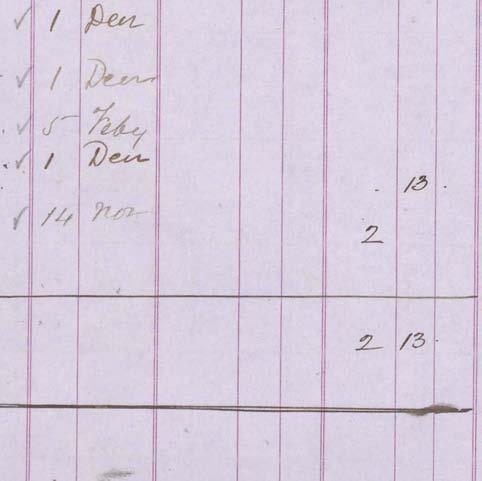 ✓ 1 Decr
✓ 1 Decr
✓ 5 Feby
✓ 1 Decr
. 13.
✓ 14 Nov
2
2 13.